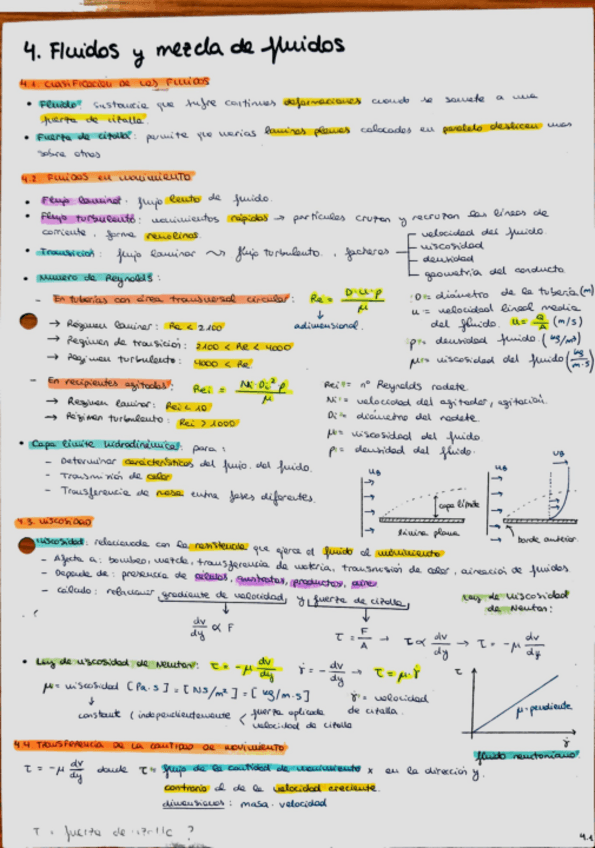 4. Fluidos y mezcla de fluidos
4.1. Clasificación de los Fluidos
• Fluido: sustancia que sufre continuas deformaciones cuando se somete a una
fuerza de cizalla.
• Fuerza de cizalla: permite que varias láminas planas colocadas en paralelo deslicen unas
sobre otras
4.2. Fluidos en movimiento
• Flujo laminar: flujo lento de fluido.
• Flujo turbulento: movimientos rápidos → partículas cruzan y recruzan las líneas de
corriente, forma remolinos.
• Transición: flujo laminar ⤳ flujo turbulento., factores
velocidad del fluido.
viscosidad
densidad
geometría del conducto
• Número de Reynolds:
- En tuberías con área transversal circular: Re = D·u·ρ / μ
↓
adimensional.
→ Régimen laminar: Re < 2.100
→ Régimen de transición: 2100 < Re < 4000
→ Régimen turbulento: 4000 < Re
D = diámetro de la tubería (m)
u = velocidad lineal media
del fluido. u = Q/A (m/s)
ρ = densidad fluido (kg/m³)
μ = viscosidad del fluido (kg/m·s)
- En recipientes agitados: Rei = Ni·Di²·ρ / μ
→ Régimen laminar: Rei < 10
→ Régimen turbulento: Rei > 1000
Rei = nº Reynolds rodete.
Ni = velocidad del agitador, agitación.
Di = diámetro del rodete.
μ = viscosidad del fluido
ρ = densidad del fluido.
• Capa límite hidrodinámica: para:
- Determinar características del flujo del fluido.
- Transmisión de calor
- Transferencia de masa entre fases diferentes.
capa límite
lámina plana
borde anterior.
4.3. Viscosidad
Viscosidad: relacionada con la resistencia que ejerce el fluido al movimiento
- Afecta a: bombeo, mezcla, transferencia de materia, transmisión de calor, aireación de fluidos
- Depende de: presencia de células, sustratos, productos, aire
- Cálculo: relacionar gradiente de velocidad y fuerza de cizalla
Ley de viscosidad
de Newton:
dv/dy ∝ F
τ = F/A → τ ∝ dv/dy → τ = -μ dv/dy
• Ley de viscosidad de Newton: τ = -μ dv/dy γ̇ = - dv/dy → τ = μ·γ̇
μ = viscosidad [Pa·s] = [N s/m²] = [kg/m·s]
γ̇ = velocidad
de cizalla.
constant (independientemente
fuerza aplicada
velocidad de cizalla
τ
μ = pendiente
γ̇
fluido newtoniano
4.4 Transferencia de la cantidad de movimiento
τ = -μ dv/dy donde τ = flujo de la cantidad de movimiento x en la dirección y.
contraria al de la velocidad creciente.
dimensiones: masa · velocidad
τ = fuerza de cizalla ?
4.1